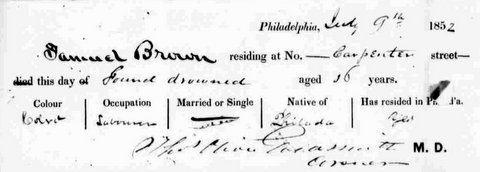 Philadelphia, July 9th 1852
Samuel Brown residing at No. — Carpenter street
died this day of Found drowned aged 16 years.
Colour Occupation Married or Single Native of Has resided in Ph Pa.
Cold Labourer Philada
Coroner M. D.